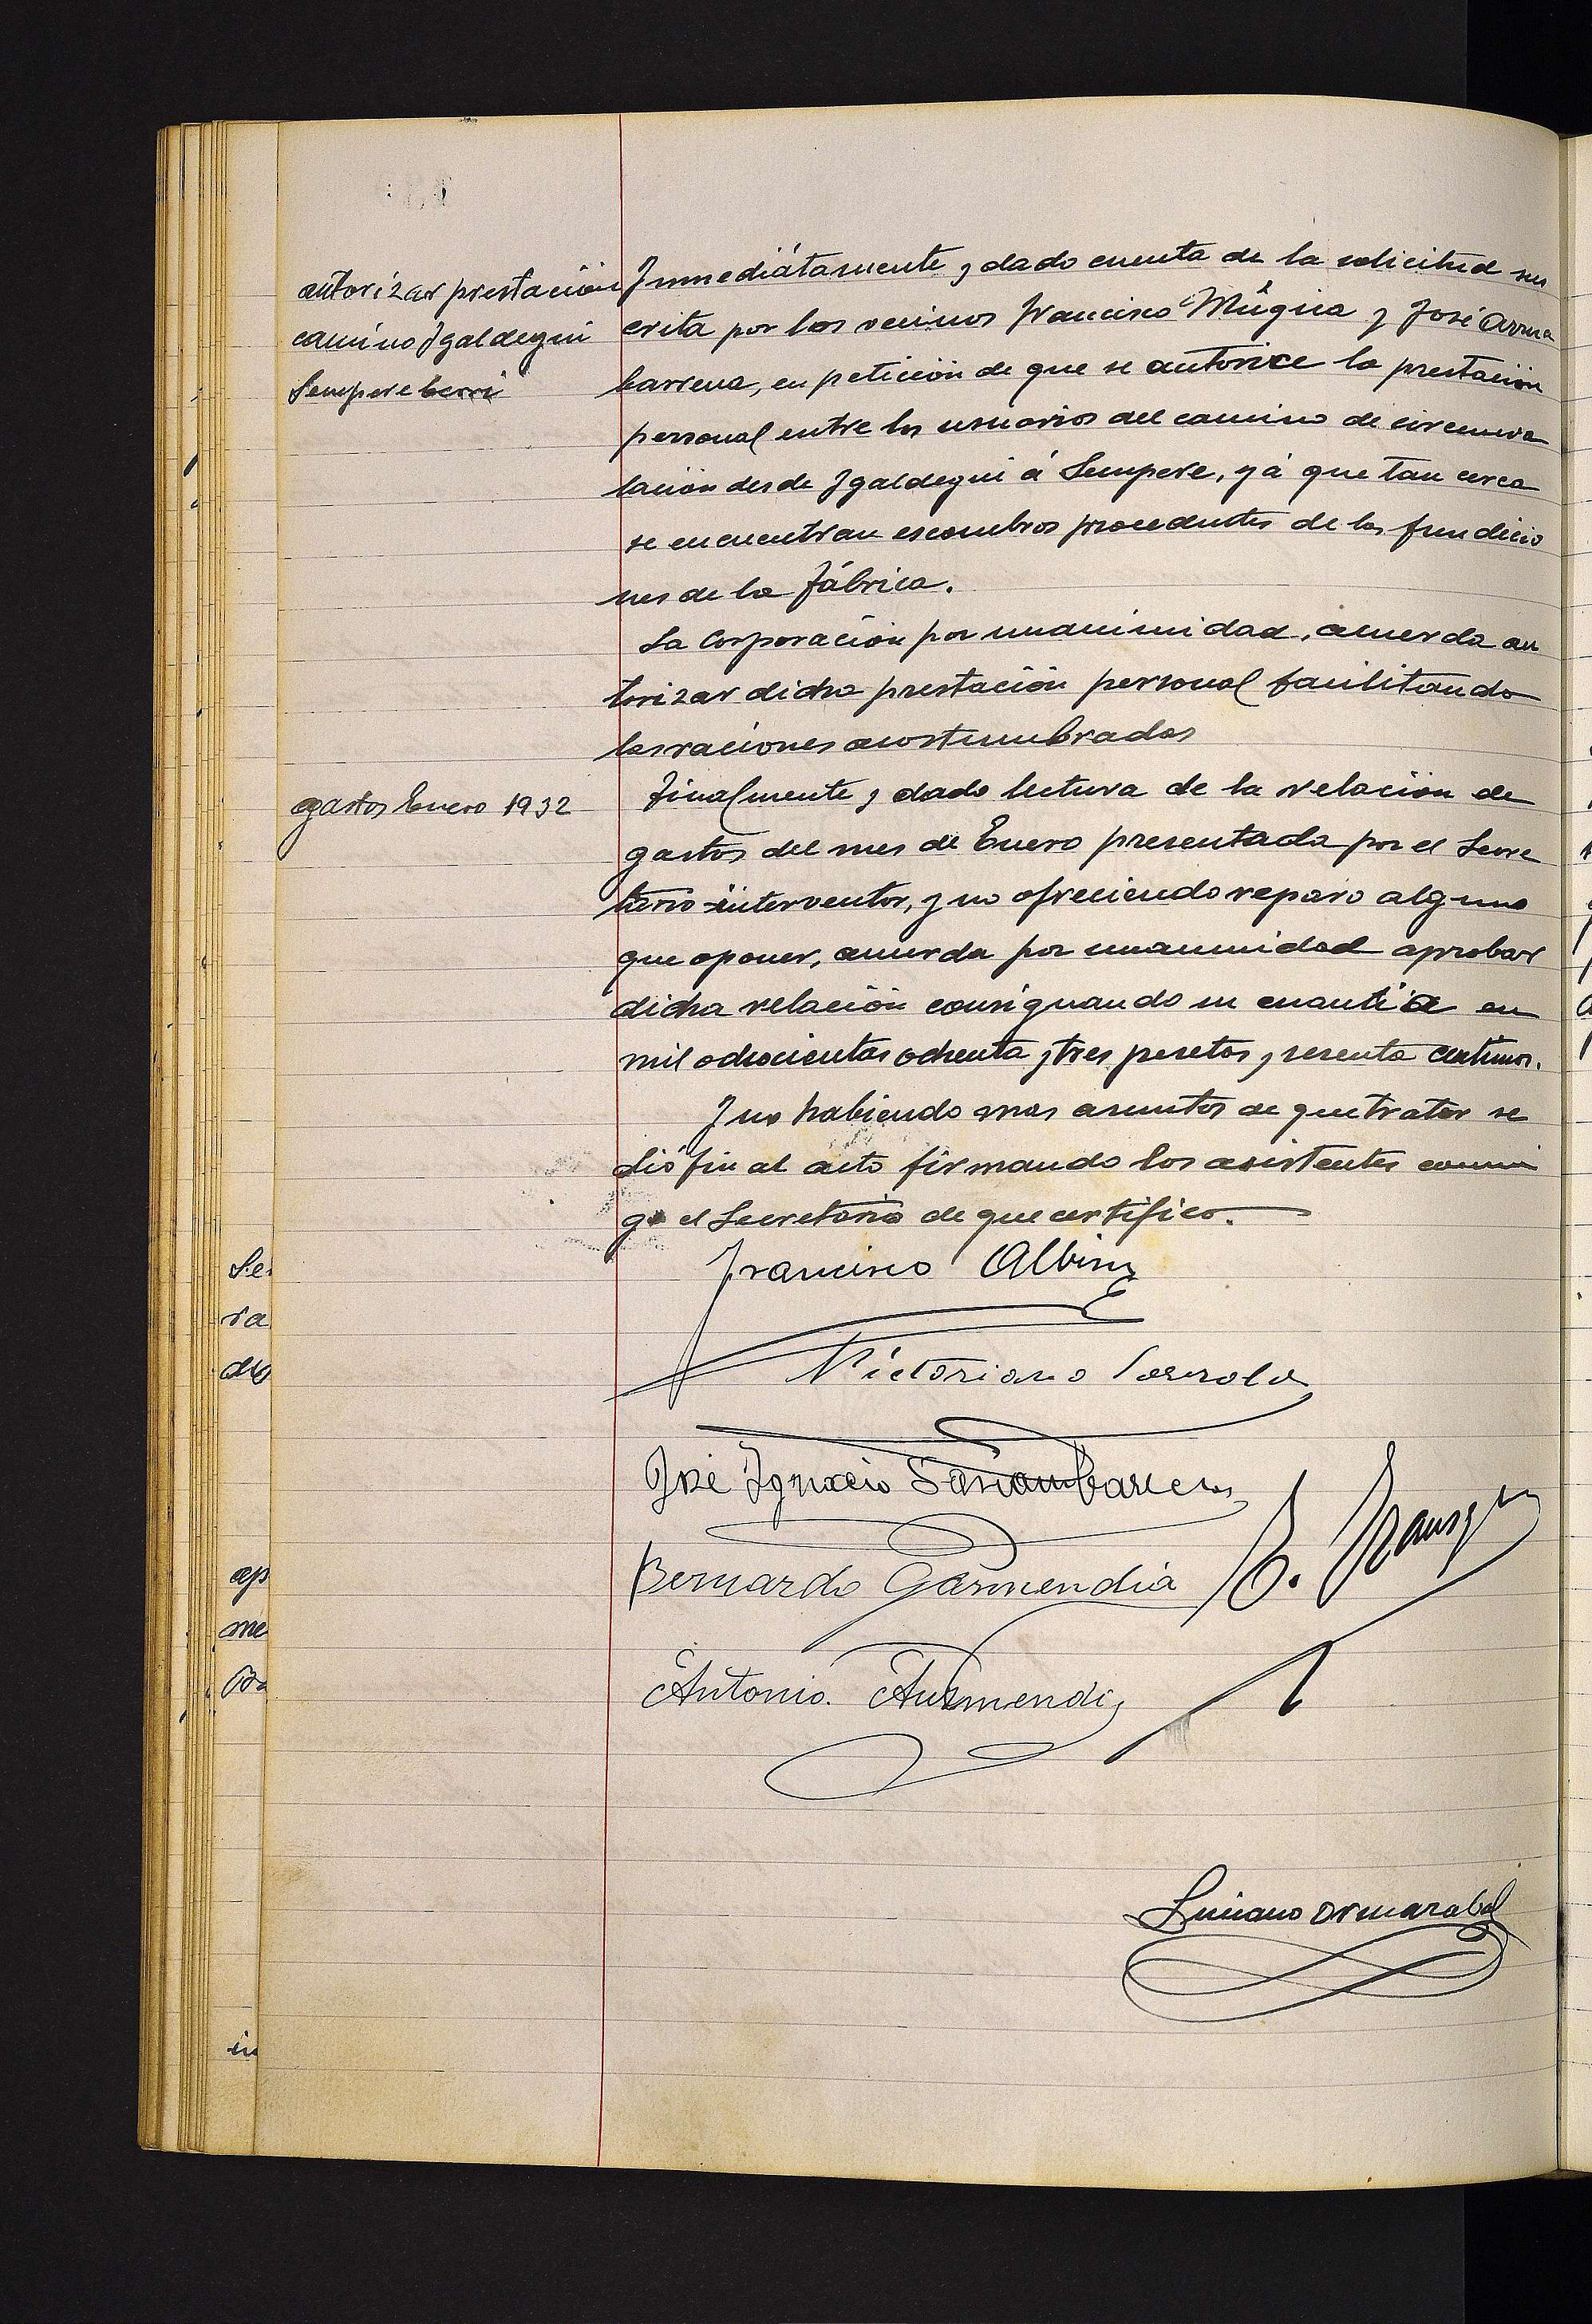 autorizar prestación
camino Igaldegui
Sempereberri
Inmediátamente y dado cuenta de la solicitud sus
crita por los vecinos Francisco Múgica y José Arrua
barrena, en petición de que se autorice la prestación
personal entre los usuarios del camino de circunva
lación desde Igaldegui á Sempere, yá que tan cerca
se encuentran escombros procedentes de las fundicio
nes de la fábrica.
La Corporación por unanimidad, acuerda au
torizar dicha prestación personal facilitando
las raciones acostumbradas
gastos Enero 1932
Finalmente y dado lectura de la relación de
gastos del mes de Enero presentada por el Secre
tario-interventor, y no ofreciendo reparo alguno
que oponer, acuerda por unanimidad aprobar
dicha relación consignando su cuantía en
mil ochocientas ochenta y tres pesetas y sesenta centimos.
Y no habiendo mas asuntos de que tratar se
dió fin al acto firmando los asistentes conmi
go el Secretario de que certifico.
Francisco Albisu
Victoriano
José Ignacio
Bernardo Garmendia
Antonio
Luciano Ormazabal
Se
ra
do
ap
me
Ba
in